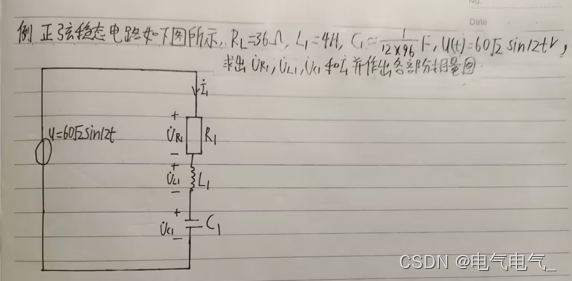 No.
Date
例 正弦稳态电路如下图所示, R_L=36Ω, L_1=4H, C_1=1/(12×96) F, U(t)=60√2 sin12t V,
求出 U̇_R1, U̇_L1, U̇_C1 和 İ_1 并作出各部分相量图
İ_1
+
U̇_R1 R_1
−
u=60√2 sin12t
+
U̇_L1 L_1
−
+
U̇_C1 C_1
−
CSDN @电气电气_